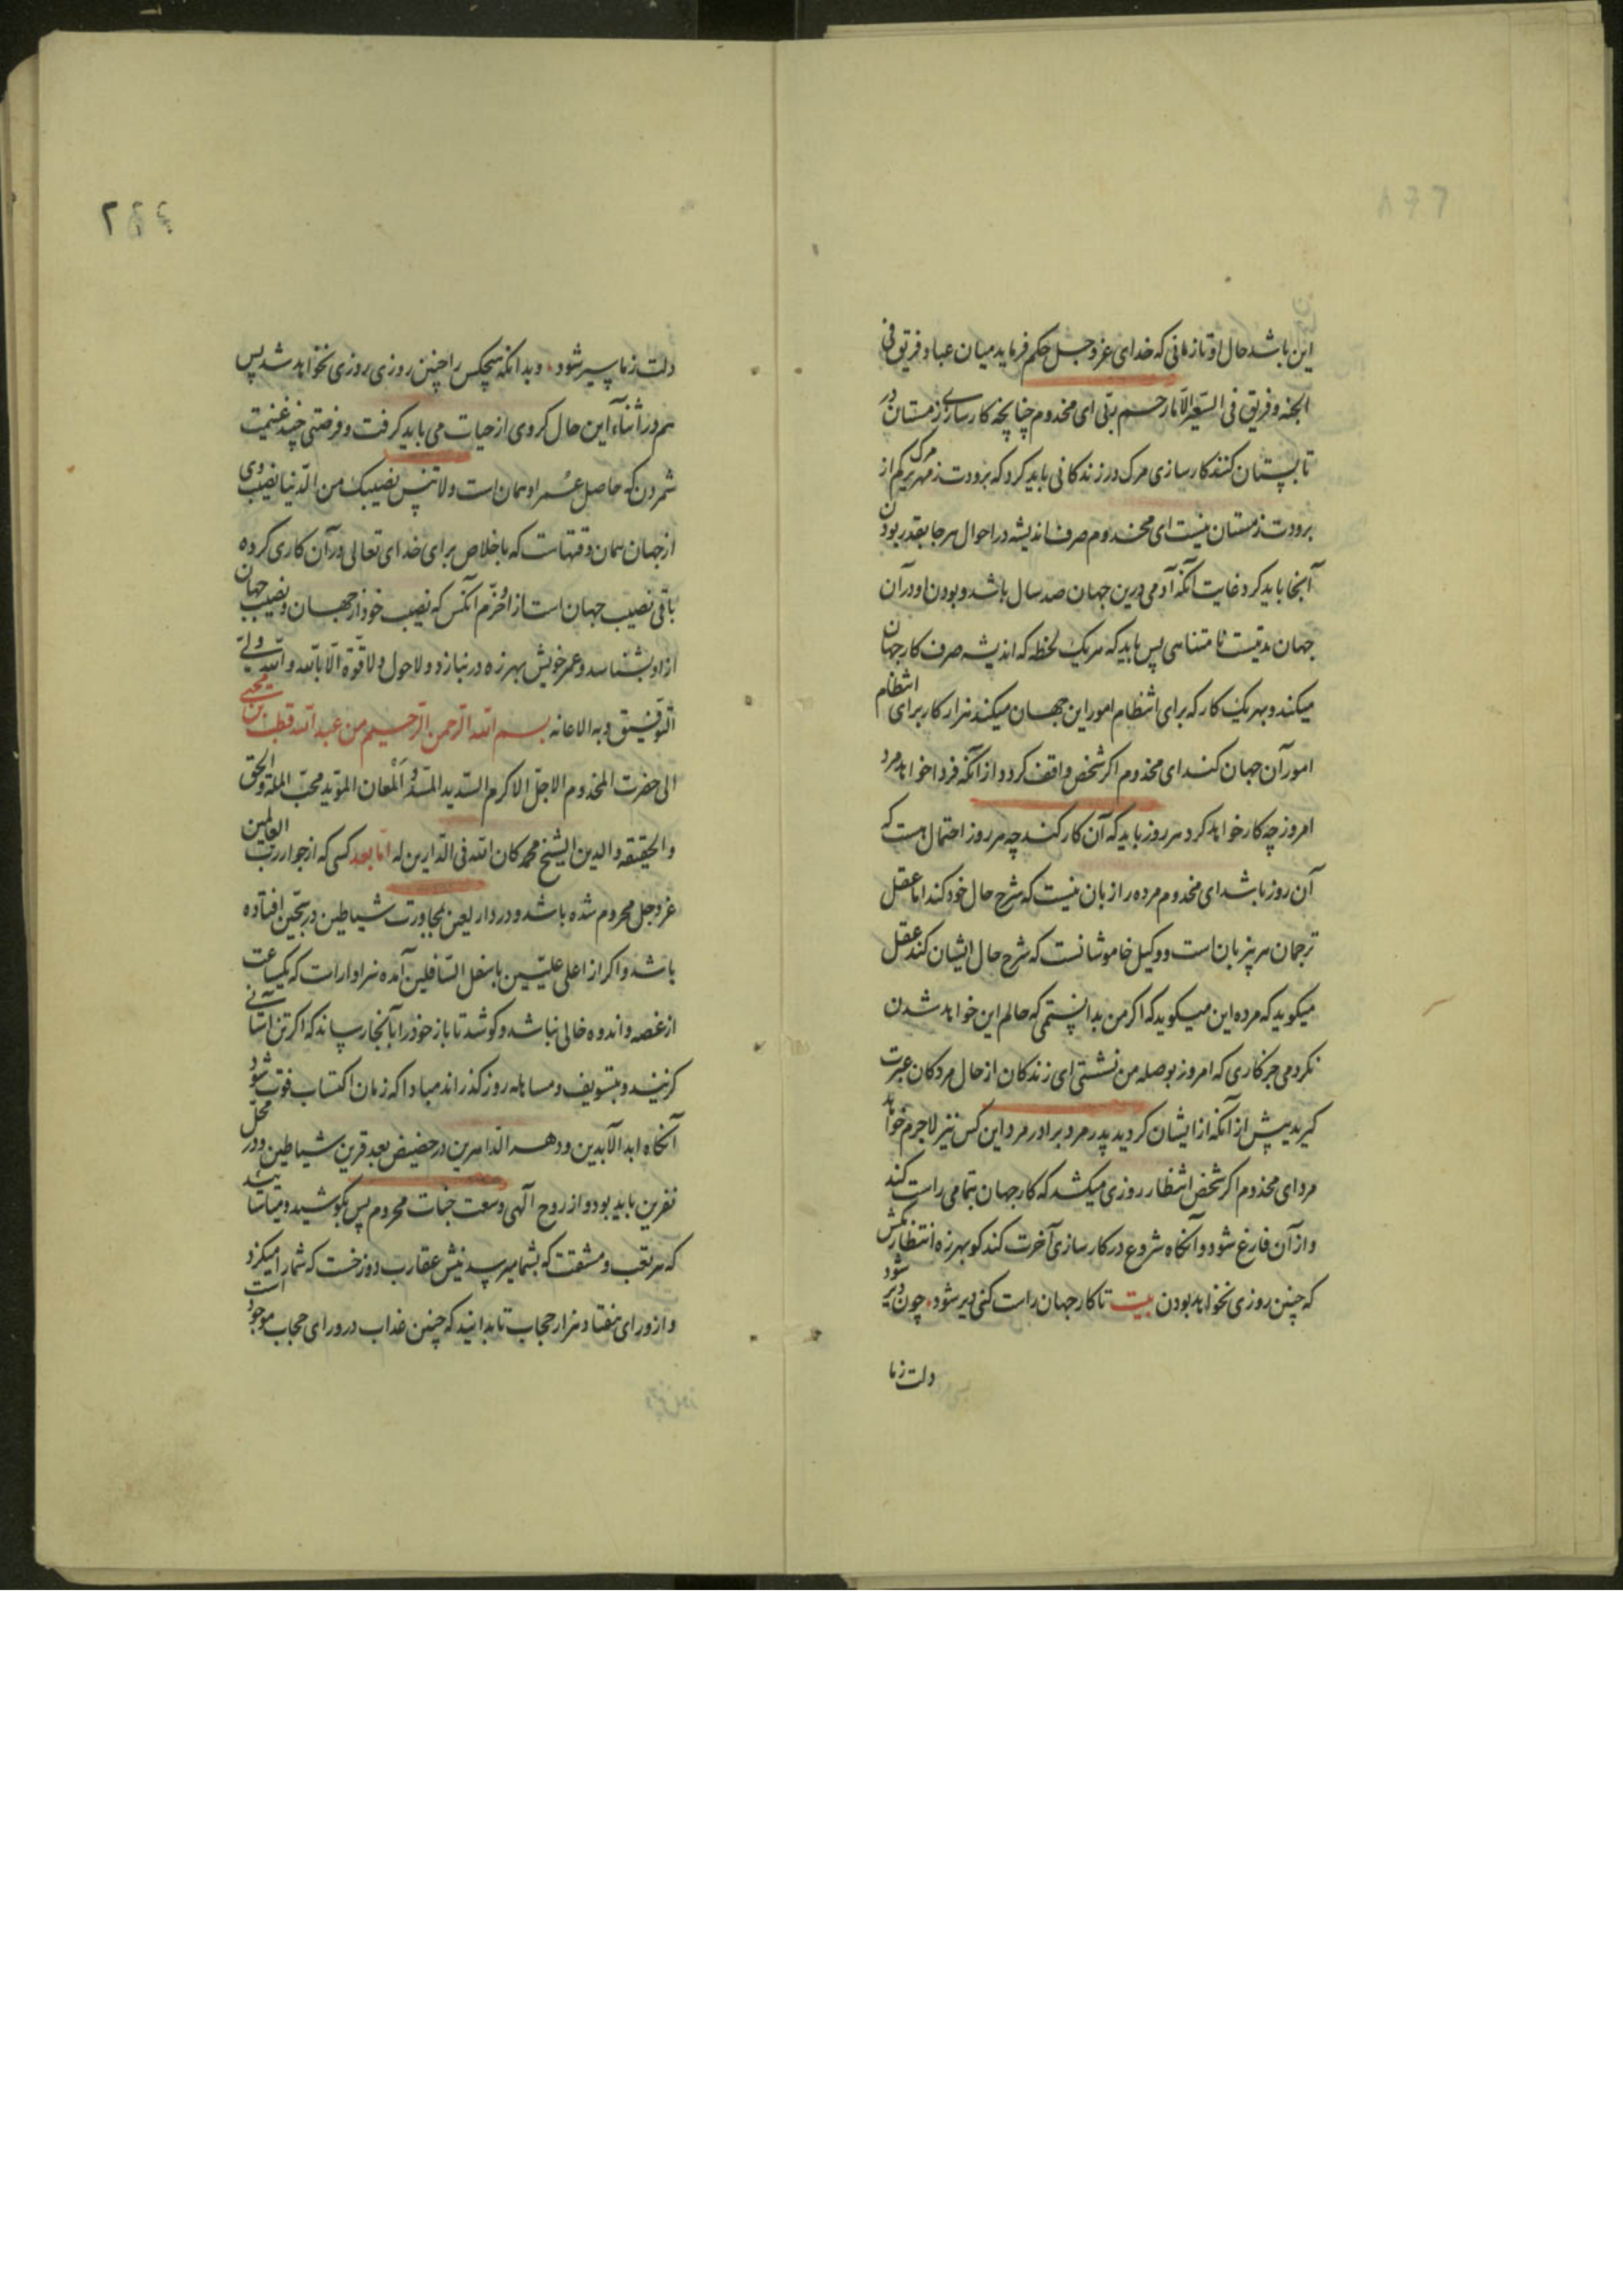 این باشد حال او تا زمانی که خدای عز و جل حکم فرماید میان عباد فریق فی
الجنه و فریق فی السعیر الا ما رحم ربی ای مخدوم چنانچه کارسازی زمستان در
تابستان کنند کارسازی مرک در زندکانی باید کرد که برودت زمهریر مرک کم از
برودت زمستان نیست ای مخدوم صرف اندیشه در احوال هر جا بقدر بودن
آنجا باید کرد غایت آنکه آدمی درین جهان صد سال باشد و بودن او در آن
جهان مدتیست نامتناهی پس باید که هر یک لحظه که اندیشه صرف کار جهان
میکند و بهر یک کار که برای انتظام امور این جهان میکند هزار کار برای انتظام
امور آن جهان کند ای مخدوم اکر شخص واقف کردد از آنکه فردا خواهد مرد
امروز چه کار خواهد کرد هر روز باید که آن کار کند چه هر روز احتمال هست که
آن روز باشد ای مخدوم مرده را زبان نیست که شرح حال خود کند اما عقل
ترجمان هر بیزبان است و وکیل خاموشانست که شرح حال ایشان کند عقل
میکوید که مرده این میکوید که اکر من بدانستمی که حالم این خواهد شدن
نکردمی جز کاری که امروز بوصله من نشستی ای زندکان از حال مردکان عبرت
کیرید پیش از آنکه از ایشان کردید پدر مرد برادر مرد این کس نیز لاجرم خواهد
مرد ای مخدوم اکر شخص انتظار روزی میکشد که کار جهان بتمامی راست کند
و از آن فارغ شود و آنکاه شروع در کارسازی آخرت کند کو بهرزه انتظار مکش
که چنین روزی نخواهد بودن بیت تا کار جهان راست کنی دیر شود. چون دیر شود
دلت زما
دلت زما سیر شود. و بدانکه هیچکس را چنین روزی روزی نخواهد شد پس
هم در اثناء این حال کروی از حیات می باید کرفت و فرصتی چند غنیمت
شمردن که حاصل عمر او همان است ولا تنس نصیبک من الدنیا نصیب وی
از جهان همان وقتهاست که باخلاص برای خدای تعالی در آن کاری کرده
باقی نصیب جهان است از او خرم آنکس که نصیب خود از جهان و نصیب جهان
از او بشناسد و عمر خویش بهرزه در نبازد ولا حول ولا قوة الا بالله والله ولی
التوفیق وبه الاعانه بسم الله الرحمن الرحیم من عبد الله قطب بن محیی
الی حضرت المخدوم الاجل الاکرم السدید المسدد المعان المؤید محب المله والحق
والحقیقه والدین الشیخ محمد کان الله فی الدارین له اما بعد کسی که از جوار رب العالمین
عز و جل محروم شده باشد و در دار لعین بمجاورت شیاطین در سجین افتاده
باشد و اکر از اعلی علیین باسفل السافلین آمده سزاوار است که یکساعت
از غصه و اندوه خالی نباشد و کوشد تا باز خود را بآنجا رساند که اکر تن آسانی
کزیند و بتسویف و مساهله روز کذراند مبادا که زمان اکتساب فوت شود
آنکاه ابد الآبدین و دهر الداهرین در حضیض بعد قرین شیاطین و در محل
نفرین باید بود و از روح الهی و سعت جنات محروم پس بکوشید و میاسائید
که هر تعب و مشقت که بشما میرسد نیش عقارب دوزخست که شما را میکزد
و از ورای هفتاد هزار حجاب تا بدانید که چنین عذاب در ورای حجاب موجود است